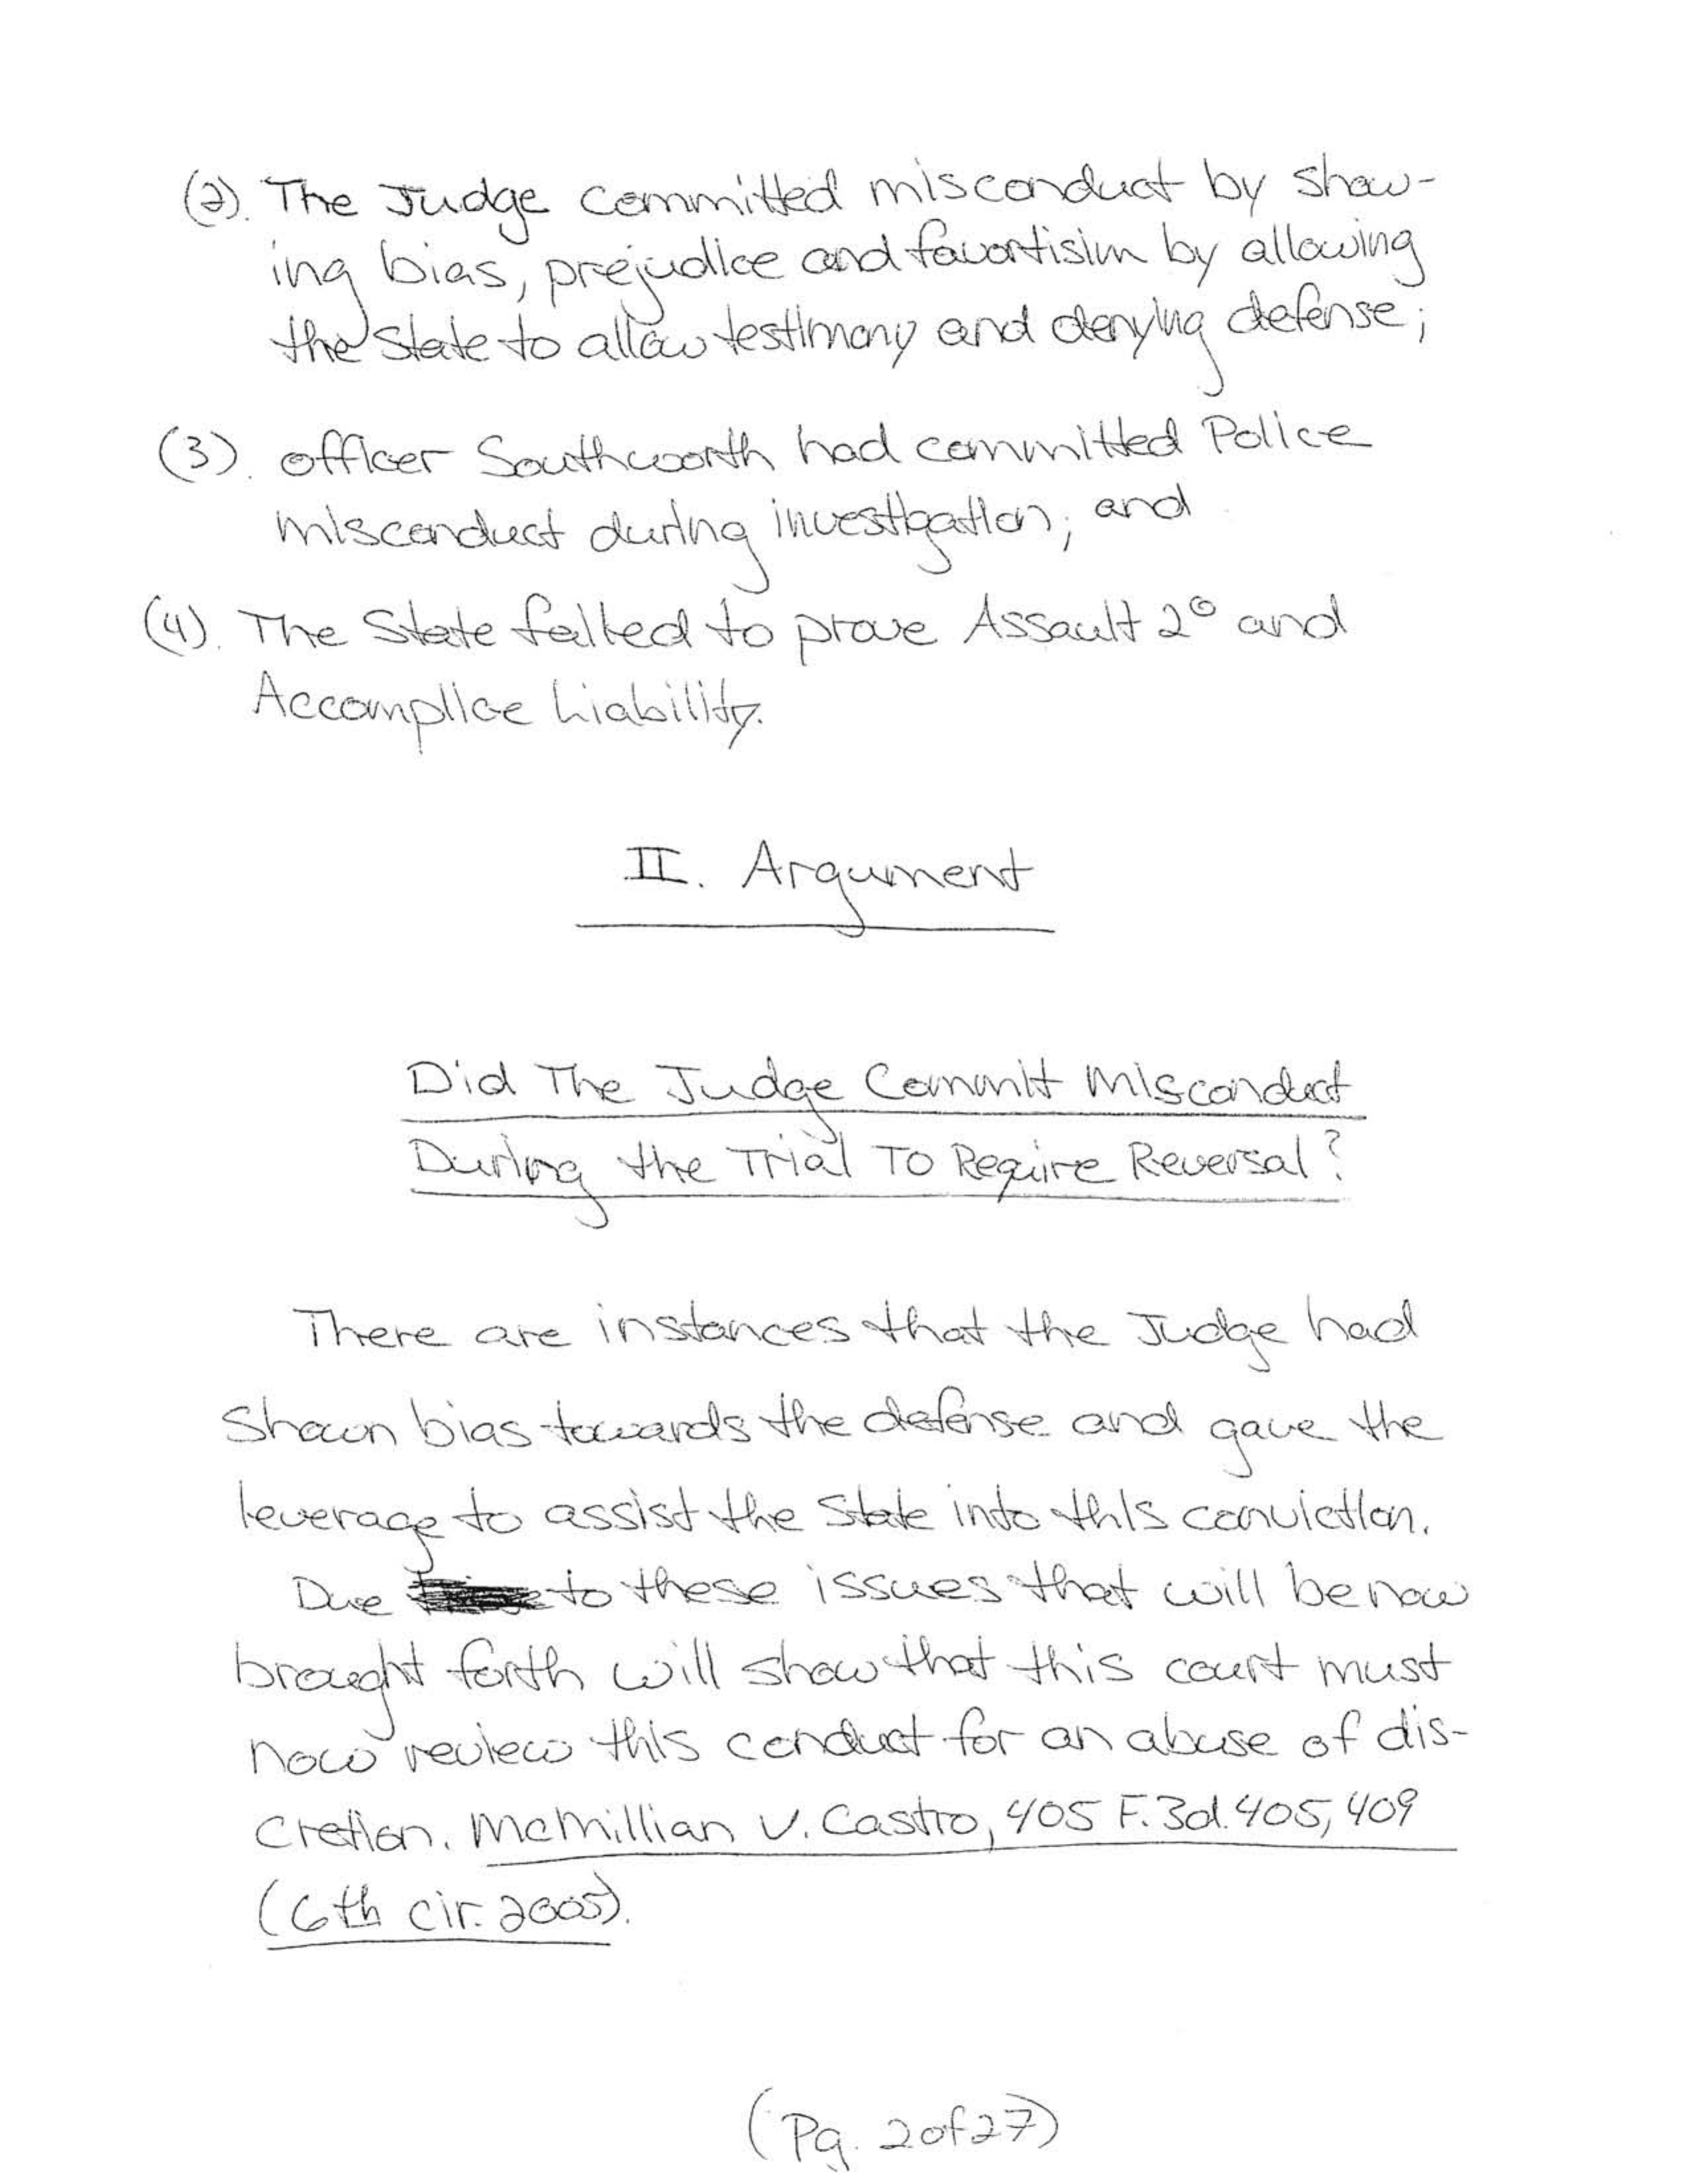 (2). The Judge committed misconduct by show-
ing bias, prejudice and favortisim by allowing
the State to allow testimony and denying defense;
(3). officer Southworth had committed Police
misconduct during investigation; and
(4). The State failed to prove Assault 2° and
Accomplice Liability.
II. Argument
Did The Judge Commit Misconduct
During the Trial To Require Reversal?
There are instances that the Judge had
Shown bias towards the defense and gave the
leverage to assist the State into this conviction.
Due to these issues that will be now
brought forth will show that this court must
now review this conduct for an abuse of dis-
cretion. McMillian v. Castro, 405 F.3d. 405, 409
(6th cir. 2005).
(Pg. 2 of 27)